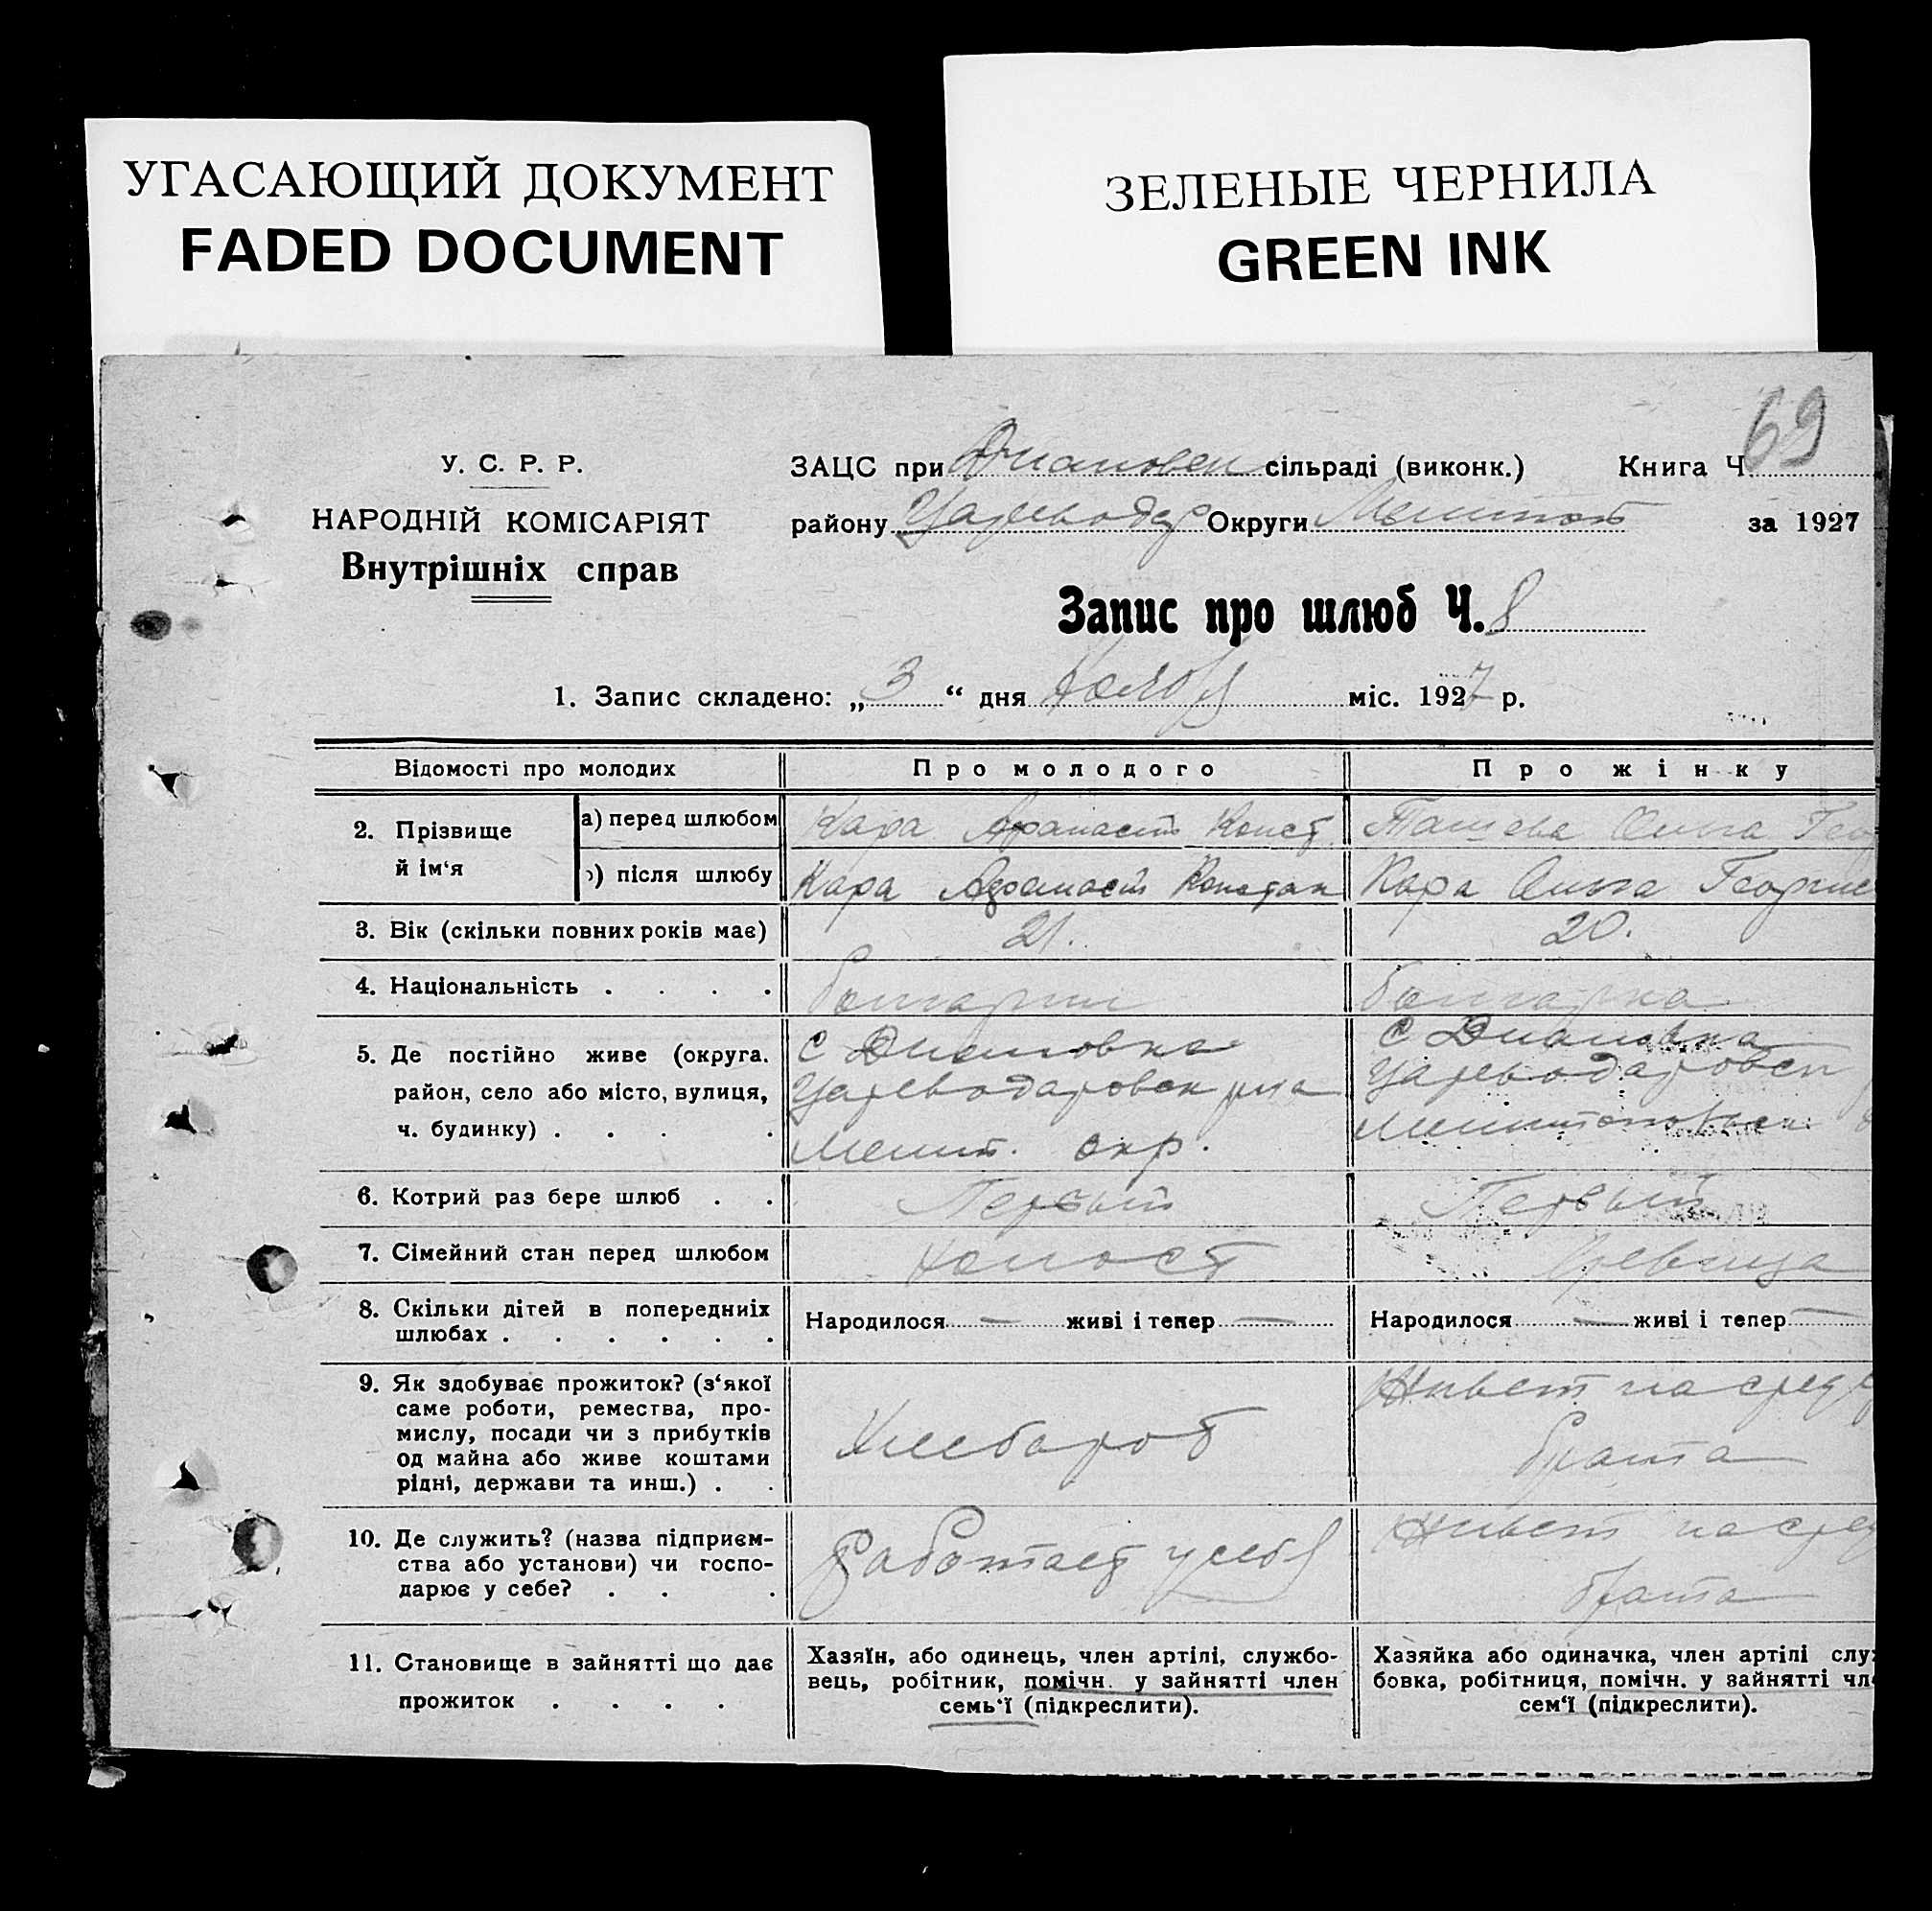 УГАСАЮЩИЙ ДОКУМЕНТ
FADED DOCUMENT
ЗЕЛЕНЫЕ ЧЕРНИЛА
GREEN INK
69
У. С. Р. Р.
НАРОДНІЙ КОМІСАРІЯТ
Внутрішніх справ
ЗАЦС при Диановск сільраді (виконк.) Книга Ч.
району Цареводар Округи Мелитоп за 1927
Запис про шлюб Ч. 8
1. Запис складено: „ 3 “ дня міс. 1927 р.
Відомості про молодих
Про молодого
Про жінку
2. Прізвище й ім‘я
а) перед шлюбом
Кара Афанасий Конст.
Ташева Ольга Геор
) після шлюбу
Кара Афанасий Констан
Кара Ольга Георгие
3. Вік (скільки повних років має)
21.
20.
4. Національність . . . .
болгарин
болгарка
5. Де постійно живе (округа.
район, село або місто, вулиця,
ч. будинку) . . . .
С Диановка
Цареводаровск р-на
Мелит. окр.
С Диановка
Цареводаровск
Мелитопольск
6. Котрий раз бере шлюб . .
Первый
Первый
7. Сімейний стан перед шлюбом
холост
девица
8. Скільки дітей в попередниіх
шлюбах . . . . . .
Народилося — живі і тепер —
Народилося — живі і тепер —
9. Як здобуває прожиток? (з‘якої
саме роботи, ремества, про-
мислу, посади чи з прибутків
од майна або живе коштами
рідні, держави та инш.) . .
Хлебороб
Живет на сред
брата
10. Де служить? (назва підприєм-
ства або установи) чи госпо-
дарює у себе? . . .
Работает у себя
Живет на сред
брата
11. Становище в зайнятті що дає
прожиток . . . .
Хазяїн, або одинець, член артілі, службо-
вець, робітник, помічн. у зайнятті член
семь‘ї (підкреслити).
Хазяйка або одиначка, член артілі служ
бовка, робітниця, помічн. у зайнятті чле
сем‘ї (підкреслити).